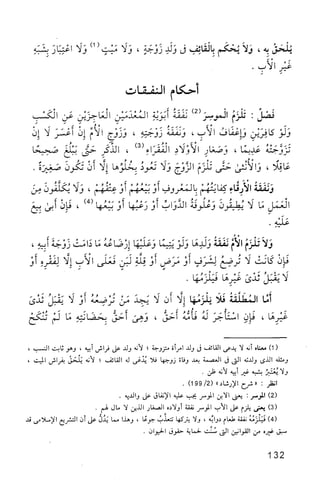 يُلْحَقُ بِهِ ، وَلاَ يُحْكَم بِالْقَائِفِ فِى وَلَدِ زَوْجَةٍ ، وَلَا مَيِّتٍ (١) وَلَا اعْتِبَارَ بِشَبَهِ
غَيْرِ الْأَبِ .
أحكام النفقات
فَصْلٌ : تَلْزَمُ الْمُوسِرَ (٢) نَفَقَةُ أَبَوَيْهِ الْمُعْدَمَيْنِ الْعَاجِزَيْنِ عَنِ الْكَسْبِ
وَلَوْ كَافِرَيْنِ وَإِعْفَافُ الْأَبِ ، وَنَفَقَةُ زَوْجَتِهِ ، وَزَوْجِ الْأُمِّ إِنْ أَعْسَرَ لَا إِنْ
تَزَوَّجَتْهُ عَدِيمًا ، وَصِغَارِ الْأَوْلَادِ الْفُقَرَاءِ (٣) ، الذَّكَرِ حَتَّى يَبْلُغَ صَحِيحًا
عَاقِلًا ، وَالْأُنْثَى حَتَّى تَلْزَمَ الزَّوْجَ وَلَا تَعُودُ بِحُلُولِهَا إِلَّا أَنْ تَكُونَ صَغِيرَةً .
وَنَفَقَةُ الْأَرِقَّاءِ كِفَايَتُهُمْ بِالْمَعْرُوفِ أَوْ بَيْعُهُمْ أَوْ عِتْقُهُمْ ، وَلَا يُكَلَّفُونَ مِنَ
الْعَمَلِ مَا لَا يُطِيقُونَ وَعُلُوفَةُ الدَّوَابِّ أَوْ رَعْيُهَا أَوْ بَيْعُهَا (٤) ، فَإِنْ أَبَى بِيعَ
عَلَيْهِ .
وَلاَ تَلْزَمُ الأُمَّ نَفَقَةُ وَلَدِهَا وَلَوْ يَتِيمًا وَعَلَيْهَا إِرْضَاعُهُ مَا دَامَتْ زَوْجَةَ أَبِيهِ ،
فَإِنْ كَانَتْ لَا تُرضِعُ لِشَرَفٍ أَوْ مَرَضٍ أَوْ قِلَّةِ لَبَنٍ فَعَلَى الْأَبِ إِلَّا لِفَقْرِهِ أَوْ
لَا يَقْبَلُ ثَدْىَ غَيْرِهَا فَيَلْزَمُهَا .
أَمَّا الْمُطَلَّقَةُ فَلَا يَلْزَمُهَا إِلَّا أَنْ لَا يَجِدَ مَنْ تُرْضِعُهُ أَوْ لَا يَقْبَلُ ثَدْىَ
غَيْرِهَا ، فَإِنِ اسْتَأْجَرَ لَهُ فَأُمُّهُ أَحَقُّ ، وَهِىَ أَحَقُّ بِحَضَانَتِهِ مَا لَمْ تُنْكَحْ
(١) معناه أنه لا يدعى القائف فى ولد امرأة متزوجة ؛ لأنه ولد على فراش أبيه ، وهو ثابت النسب ،
ومثله الذى ولدته التى فى العصمة بعد وفاة زوجها فلا يُدْعَى له القائف ؛ لأنه يُلْحَقُ بفراش الميت ،
ولا يُعْتَبَرُ بشبه غير أبيه لأنه ظن .
انظر : « شرح الإرشاد » (2/199) .
(٢) الموسر : يعنى الابن الموسر يجب عليه الإنفاق على والديه .
(٣) يعنى يلزم على الأب الموسر نفقة أولاده الصغار الذين لا مال لهم .
(٤) فيَلْزَمُهُ نفقة طعام دوابّه ، ولا يتركها تتعذّب جوعًا ، وهذا مما يَدُلُّ على أن التشريع الإسلامى قد
سبق غيره من القوانين التى سُنَّت لحماية حقوق الحيوان .
132